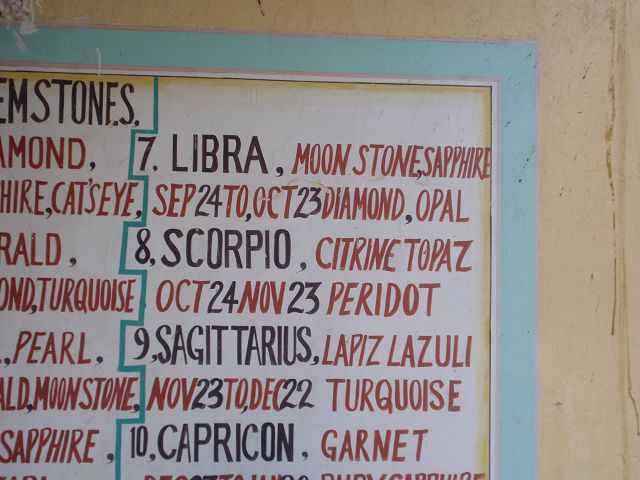 EMSTONES,
AMOND,
HIRE, CAT'SEYE,
RALD,
OND, TURQUOISE
, PEARL,
ALD, MOONSTONE,
SAPPHIRE,
7, LIBRA, MOON STONE, SAPPHIRE
SEP 24 TO, OCT 23 DIAMOND, OPAL
8, SCORPIO, CITRINE TOPAZ
OCT 24 NOV 23 PERIDOT
9, SAGITTARIUS, LAPIZ LAZULI
NOV 23 TO, DEC 22 TURQUOISE
10, CAPRICON, GARNET
RUBY SAPPHIRE